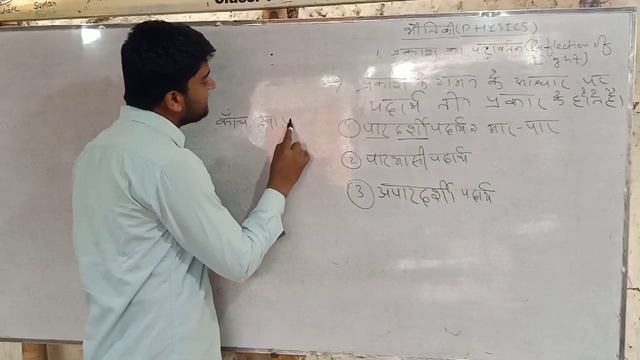 Suman
Class
भौतिकी (PHYSICS)
1. प्रकाश का परावर्तन (Reflection of
Light)
→ प्रकाश के गमन के आधार पर
पदार्थ तीन प्रकार के होते है।
① पारदर्शी पदार्थ आर-पार
काँच हवा
② पारभासी पदार्थ
③ अपारदर्शी पदार्थ